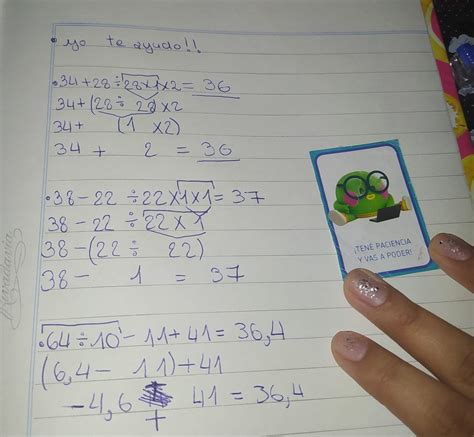 • yo te ayudo!!
• 34+28÷28x1x2=36
34+(28÷ 28)x2
34+ (1 x2)
34 + 2 = 36
• 38-22÷22x1x1=37
38-22÷22x1
38-(22÷ 22)
38- 1 = 37
• 64÷10-11+41=36,4
(6,4- 11)+41
-4,6 + 41=36,4
¡TENÉ PACIENCIA
Y VAS A PODER!